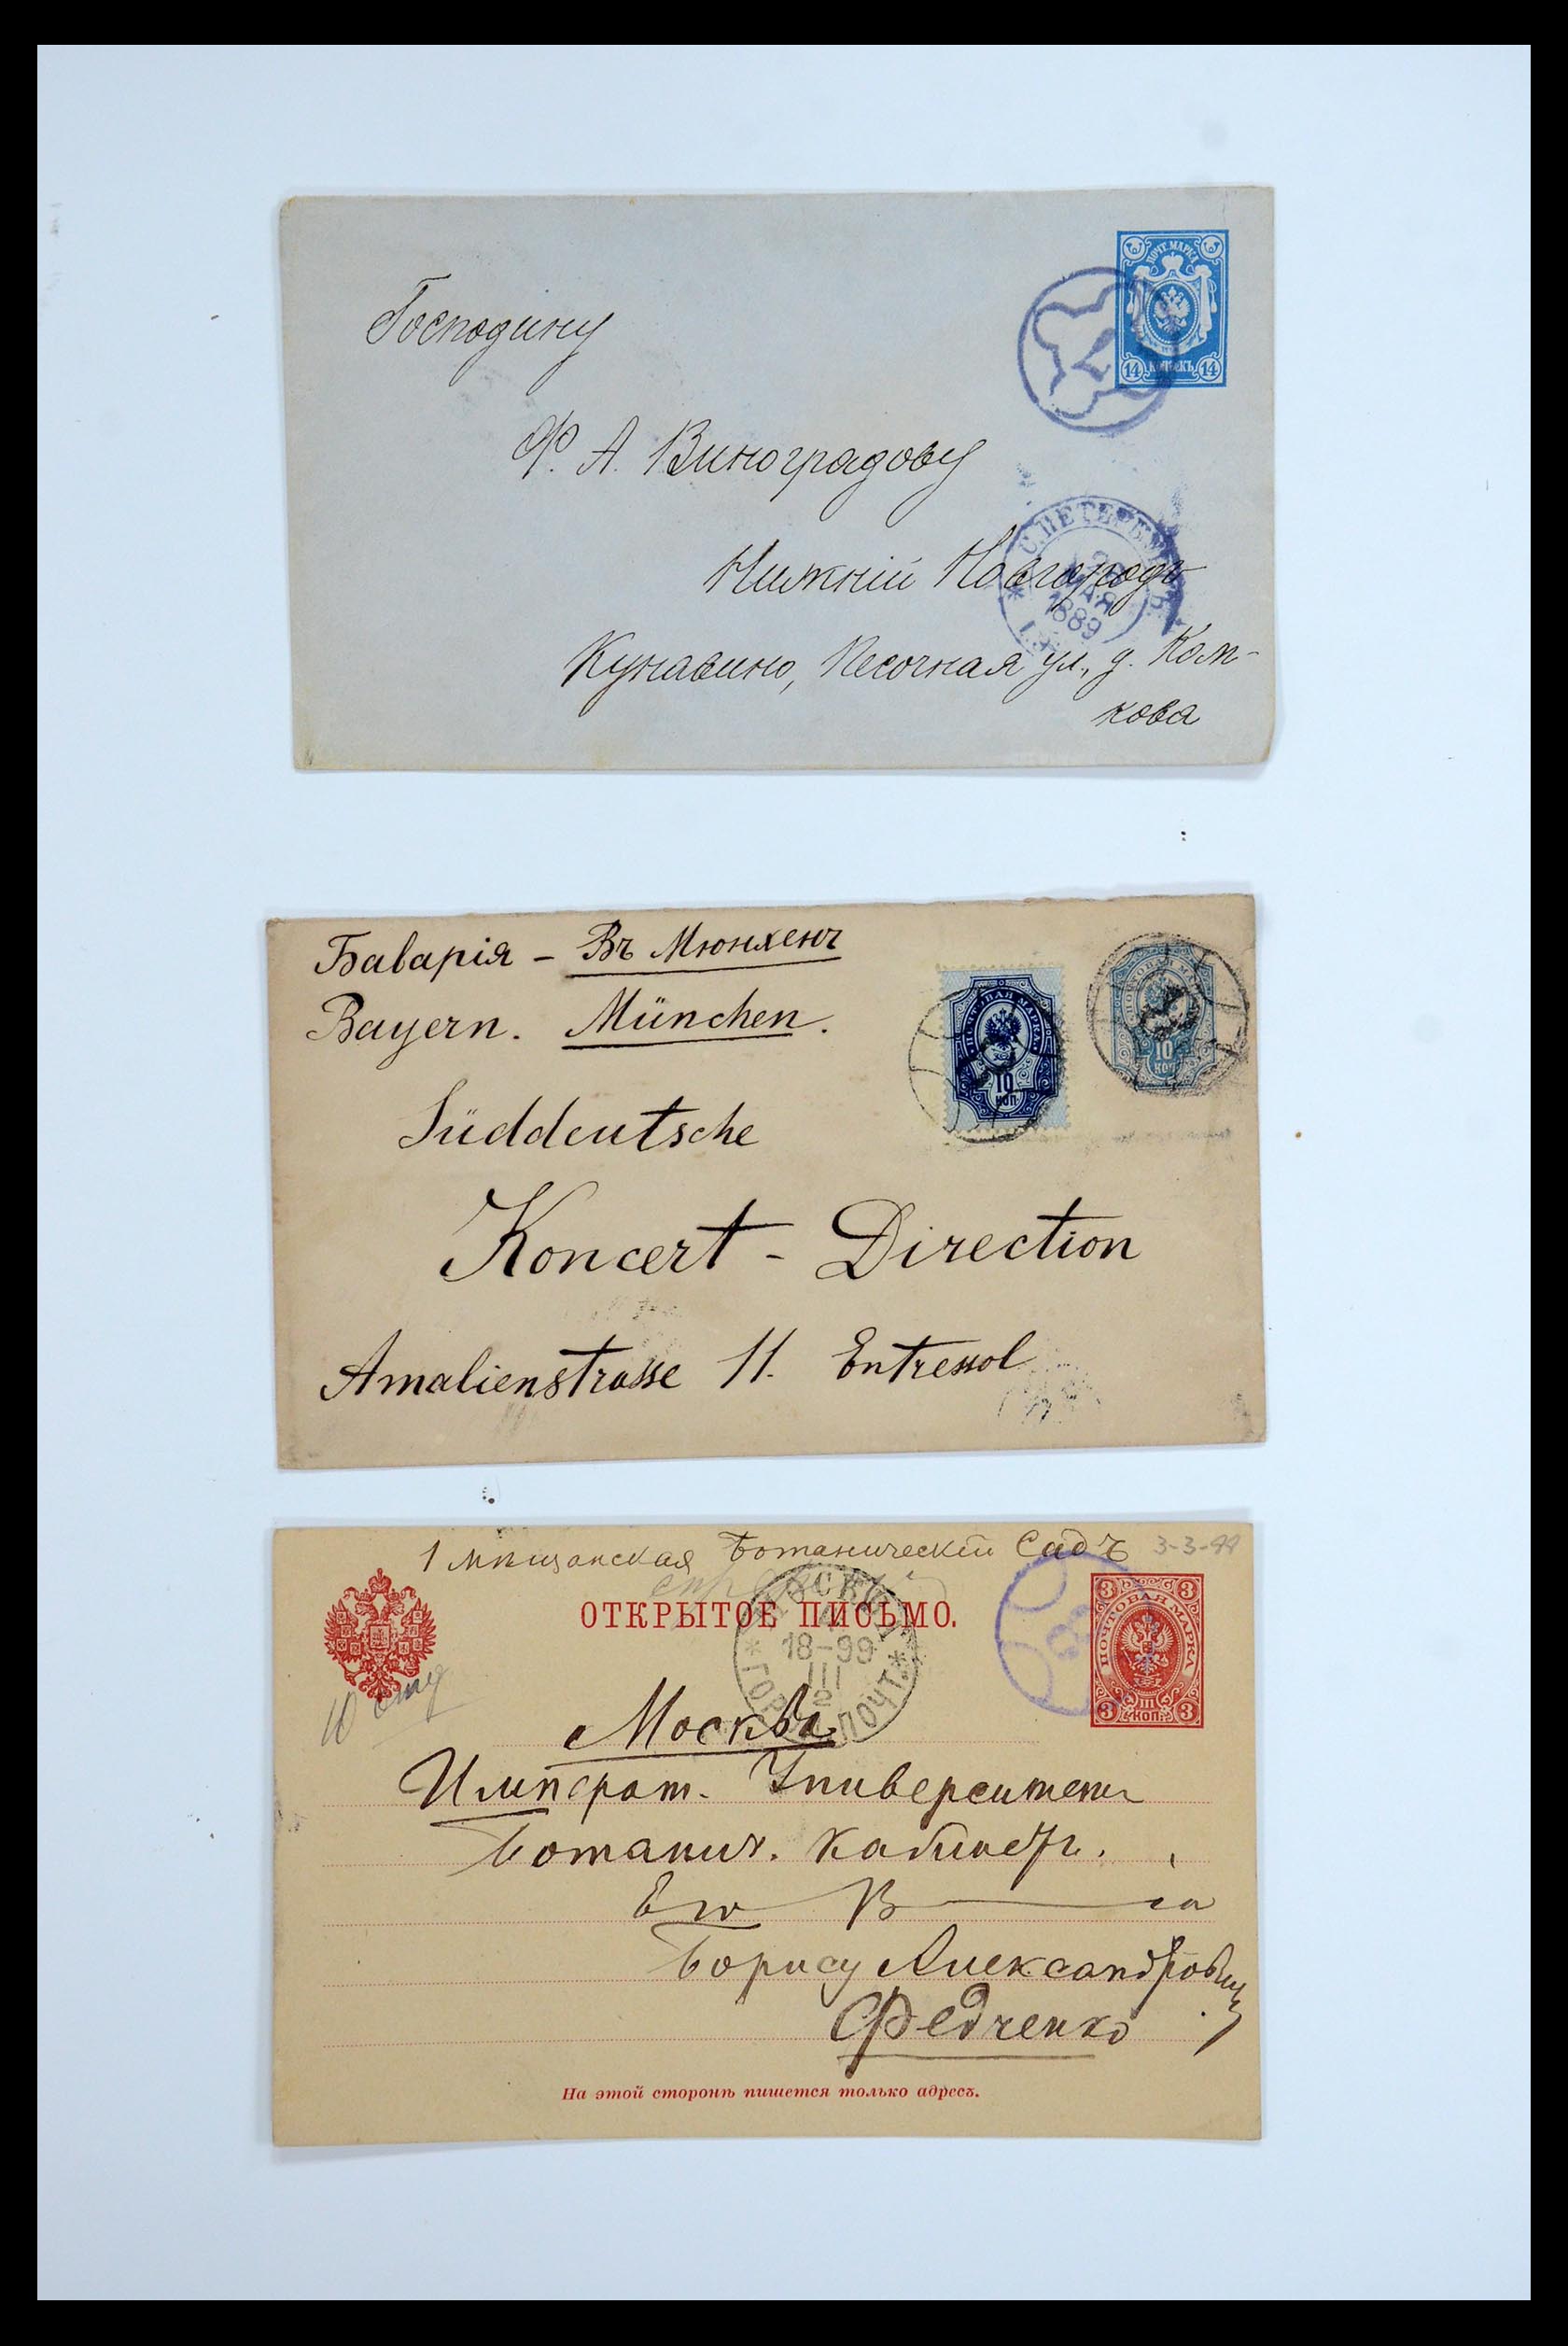 ПОЧТ. МАРКА
14 КОПѢЕКЪ 14
Господину
Ф. А. Виноградову
С. ПЕТЕРБУРГЪ
МАЯ
1889
Нижній Новгородъ
Кунавино, Песочная ул., д. Ком-
кова
Баварія – Въ Мюнхенъ
Bayern. München.
ПОЧТОВАЯ МАРКА
10
КОП.
ПОЧТОВАЯ МАРКА
10
КОП.
Süddeutsche
Koncert - Direction
Amalienstrasse 11. Entressol
1 Мѣщанская Ботаническій Садъ 3-3-99
ОТКРЫТОЕ ПИСЬМО.
МОСКВА
18-99
III
2
ГОР. ПОЧТ.
3 3
ПОЧТОВАЯ МАРКА
3 КОП. 3
Москва
Императ. Университетъ
Ботанич. Кабинетъ.
Его В
Борису Александровичу
Федченко
На этой сторонѣ пишется только адресъ.